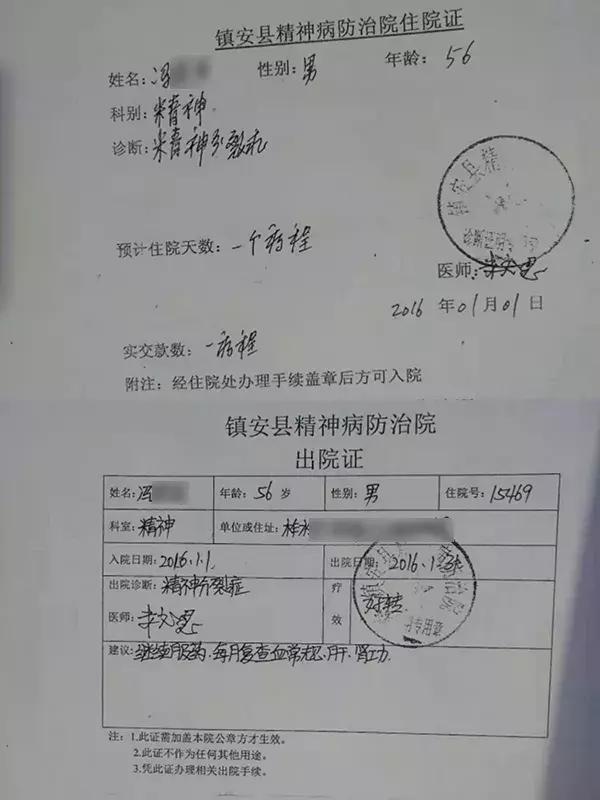 镇安县精神病防治院住院证
姓名:冯 性别:男 年龄:56
科别:精神
诊断:精神分裂症
镇安县精
诊断证明
预计住院天数:一个疗程
医师:李文思
2016年01月01日
实交款数:一疗程
附注:经住院处办理手续盖章后方可入院
镇安县精神病防治院
出院证
姓名:冯 年龄:56岁 性别:男 住院号:152469
科室:精神 单位或住址:
入院日期:2016.1.1. 出院日期:2016.1.
出院诊断:精神分裂症 疗效 好转
医师:李文思
建议:继续服药.每月复查血常规.肝.肾功.
注:1.此证需加盖本院公章方才生效。
2.此证不作为任何其他用途。
3.凭此证办理相关出院手续。